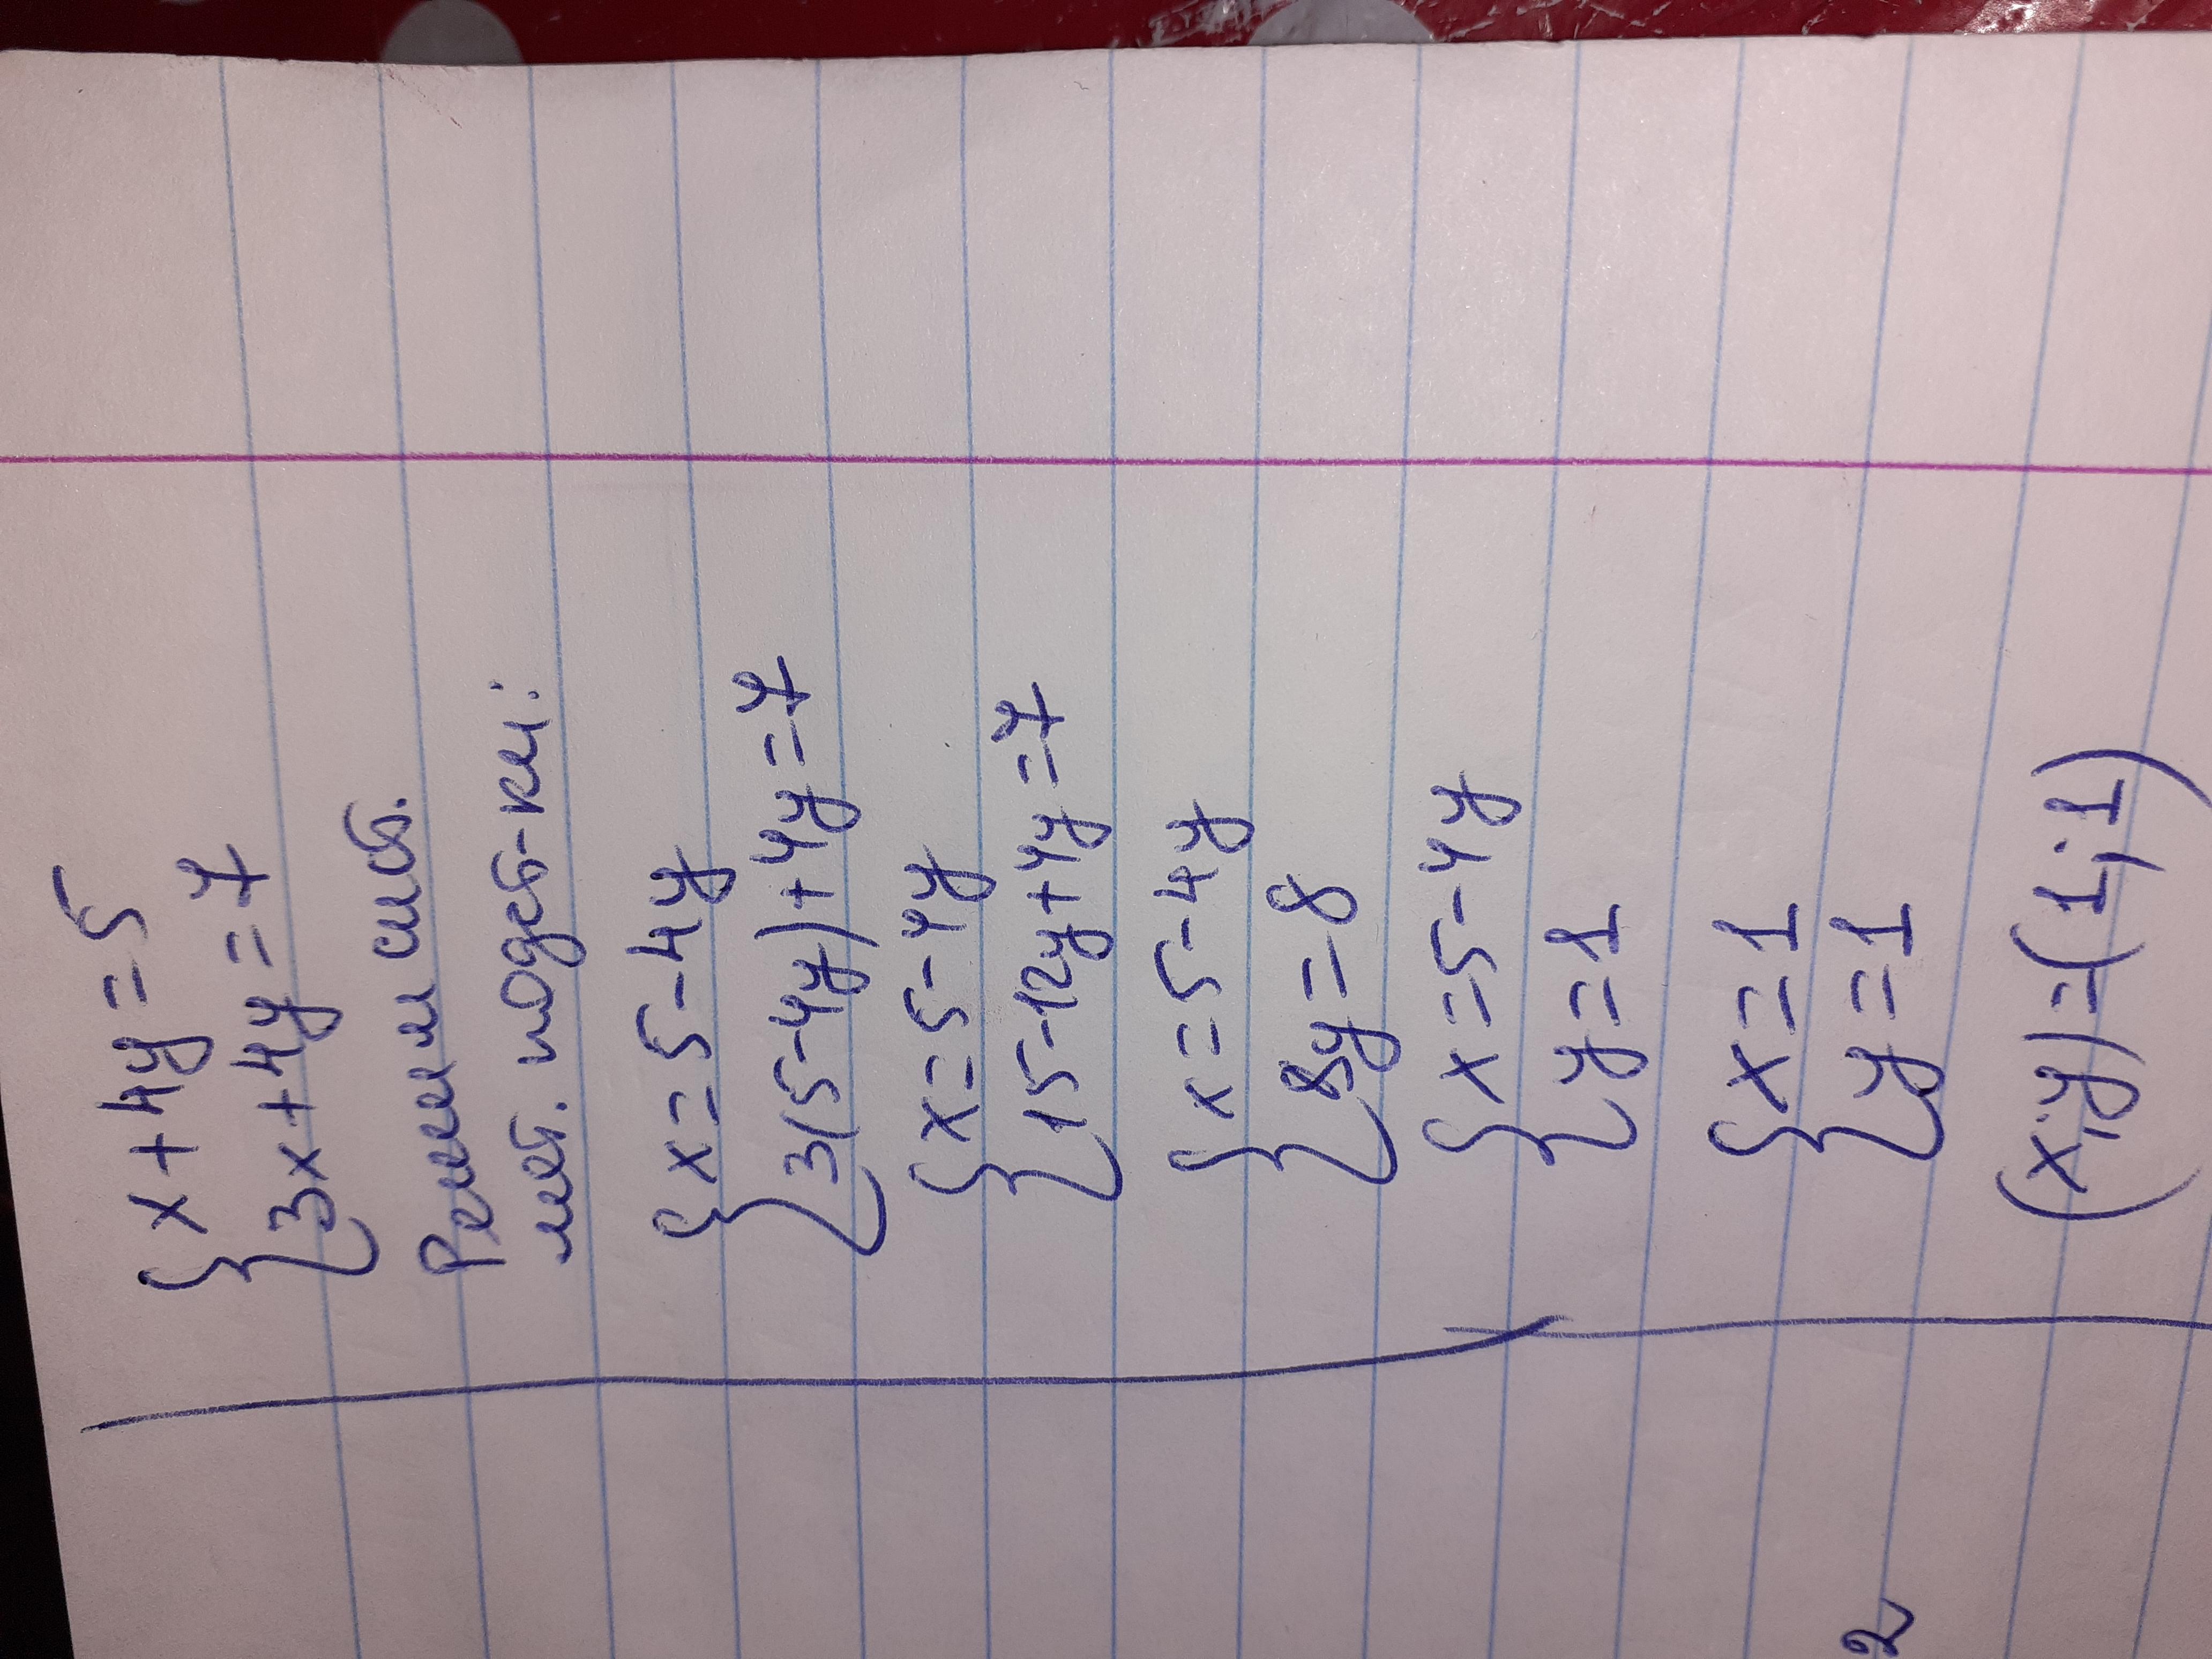 { x + 4y = 5
{ 3x + 4y = 7
Решим сист.
мет. подст-ки:
{ x = 5 - 4y
{ 3(5 - 4y) + 4y = 7
{ x = 5 - 4y
{ 15 - 12y + 4y = 7
{ x = 5 - 4y
{ 8y = 8
{ x = 5 - 4y
{ y = 1
{ x = 1
{ y = 1
(x; y) = (1; 1)